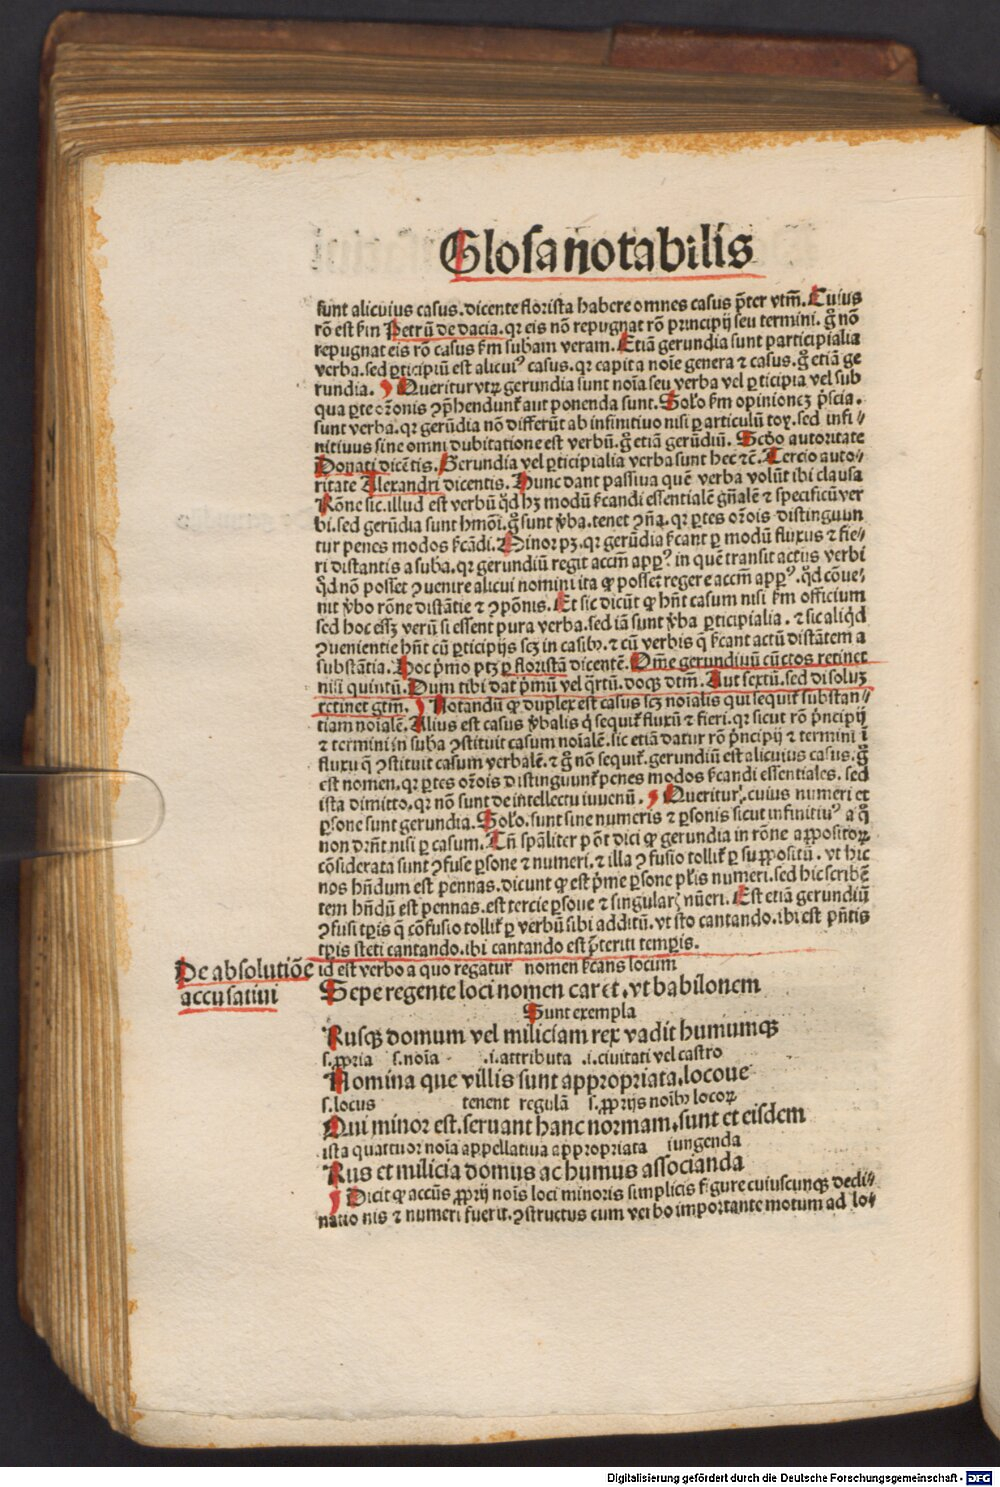 Glosa notabilis
sunt alicuius casus. dicente florista habere omnes casus p̄ter vtm̄. Cuius
rō est s̄m Petrū de dacia. qr eis nō repugnat rō principij seu termini. g̊ nō
repugnat eis rō casus s̄m subam veram. Etiā gerundia sunt participialia
verba. sed ꝑticipiū est alicuiꝰ casus. qr capit a noīe genera ⁊ casus. g̊ etiā ge
rundia. Queritur vtrꝫ gerundia sunt noīa seu verba vel ꝑticipia vel sub
qua ꝑte or̄onis ꝯp̄hendunt̄ aut ponenda sunt. Solo s̄m opinionez p̄scia.
sunt verba. qr gerūdia nō differūt ab infinitiuo nisi ꝑ articulū toꝝ. sed infi-
nitiuus sine omni dubitatione est verbū. g̊ etiā gerūdiū. Scd̄o autoritate
Donati dicētis. Gerundia vel ꝑticipialia verba sunt hec ⁊c̄. Tercio auto-
ritate Alexandri dicentis. Hunc dant passiua quē verba volūt ibi clausa
Rōne sic. illud est verbū qd̄ hꝫ modū s̄candi essentialē gn̄alē ⁊ specificū ver
bi. sed gerūdia sunt hmōi. g̊ sunt v̄ba. tenet ꝯn̄a. qr ꝑtes or̄ois distinguun
tur penes modos s̄cādi. Minor pꝫ. qr gerūdia s̄cant ꝑ modū fluxus ⁊ fie-
ri distantis a suba. qr gerundiū regit accm̄ appꝰ. in quē transit actus verbi
qd̄ nō posset ꝯuenire alicui nomini ita ꝙ posset regere accm̄ appꝰ. qd̄ cōue-
nit v̄bo rōne distātie ⁊ ꝯpōnis. Et sic dicūt ꝙ hn̄t casum nisi s̄m officium
sed hoc essꝫ verū si essent pura verba. sed iā sunt v̄ba ꝑticipialia. ⁊ sic aliqd̄
ꝯuenientie hn̄t cū ꝑticipijs scꝫ in casibꝰ. ⁊ cū verbis q̄ s̄cant actū distātem a
substātia. Hoc p̄mo ptꝫ ꝑ floristā dicentē. Om̄e gerundiuū cūctos retinet
nisi quintū. Dum tibi dat p̄mū vel q̄rtū. doqꝫ dtm̄. Aut sextū. sed di solꝫ
retinet gtm̄. Notandū ꝙ duplex est casus scꝫ noīalis qui sequit̄ substan-
tiam noīalē. Alius est casus v̄balis q̄ sequit̄ fluxū ⁊ fieri. qr sicut rō p̄ncipij
⁊ termini in suba ꝯstituit casum noīalē. sic etiā datur rō p̄ncipij ⁊ termini ī
fluxu q̄ ꝯstituit casum verbalē. ⁊ g̊ nō sequit̄. gerundiū est alicuius casus. g̊
est nomen. qr ꝑtes or̄ois distinguunt̄ penes modos s̄candi essentiales. sed
ista dimitto. qr nō sunt de intellectu iuuenū. Queritur. cuius numeri et
ꝑsone sunt gerundia. Solo. sunt sine numeris ⁊ ꝑsonis sicut infinitiuꝰ a q̊
non dr̄nt nisi ꝑ casum. Tn̄ spāliter pōt dici ꝙ gerundia in rōne a ꝓpositoꝝ
cōsiderata sunt ꝯfuse ꝑsone ⁊ numeri. ⁊ illa ꝯfusio tollit̄ ꝑ su ꝓpositū. vt hic
nos hn̄dum est pennas. dicunt ꝙ est p̄me ꝑsone pl̄is numeri. sed hic scribē
tem hn̄dū est pennas. est tercie ꝑsone ⁊ singularꝭ nūeri. Est etiā gerundiū
ꝯfusi tꝑis q̄ cōfusio tollit̄ ꝑ verbū sibi additū. vt sto cantando. ibi est p̄ntis
tꝑis steti cantando. ibi cantando est p̄teriti temꝑis.
De absolutiōe
accusatiui
id est verbo a quo regatur nomen s̄cans locum
Sepe regente loci nomen caret. vt babilonem
Sunt exempla
Rusqꝫ domum vel miliciam rex vadit humumqꝫ
s. ꝓpria s. noīa .i. attributa .i. ciuitati vel castro
Nomina que villis sunt appropriata. locoue
s. locus tenent regulā s. ꝓprijs noībꝰ locoꝝ
Qui minor est. seruant hanc normam. sunt et eisdem
ista quattuor noīa appellatiua appropriata iungenda
Rus et milicia domus ac humus associanda
Dicit ꝙ accūs ꝓprij noīs loci minoris simplicis figure cuiuscunqꝫ decli-
natio nis ⁊ numeri fuerit. ꝯstructus cum verbo importante motum ad lo-
Digitalisierung gefördert durch die Deutsche Forschungsgemeinschaft - DFG